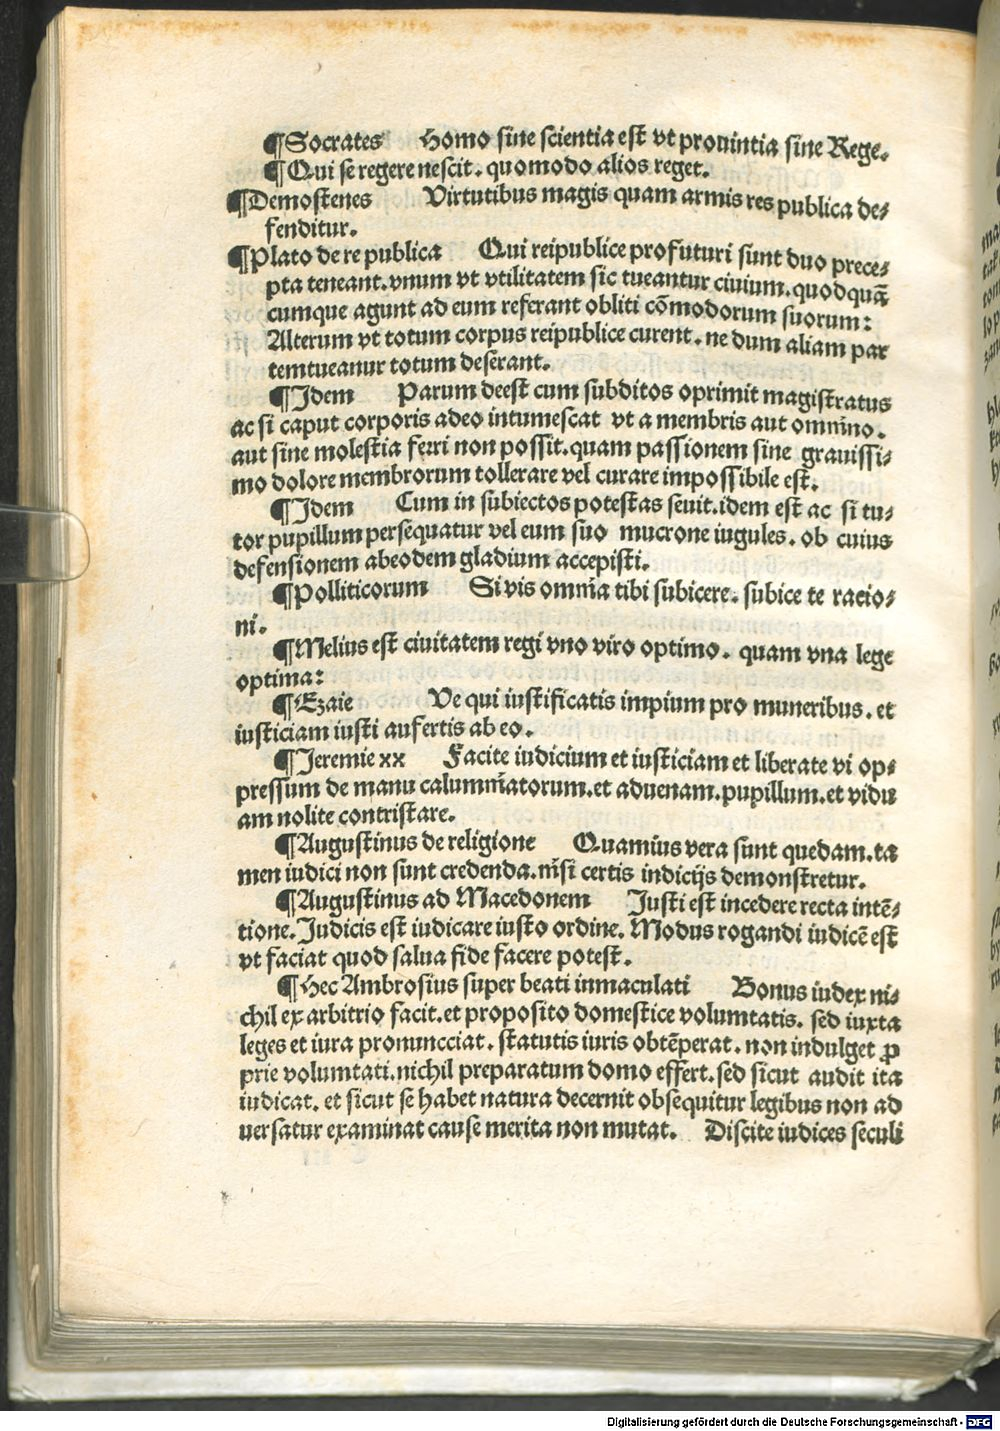 ¶Socrates Homo sine scientia est vt prouintia sine Rege.
¶Qui se regere nescit. quomodo alios reget.
¶Demostenes Virtutibus magis quam armis res publica de⸗
fenditur.
¶Plato de re publica Qui reipublice profuturi sunt duo prece⸗
pta teneant. vnum vt vtilitatem sic tueantur ciuium. quodquā
cumque agunt ad eum referant obliti cōmodorum suorum:
Alterum vt totum corpus reipublice curent. ne dum aliam par
temtueanur totum deserant.
¶Idem Parum deest cum subditos oprimit magistratus
ac si caput corporis adeo intumescat vt a membris aut omnino.
aut sine molestia ferri non possit. quam passionem sine grauissi⸗
mo dolore membrorum tollerare vel curare impossibile est.
¶Idem Cum in subiectos potestas seuit. idem est ac si tu⸗
tor pupillum persequatur vel eum suo mucrone iugules. ob cuius
defensionem abeodem gladium accepisti.
¶Polliticorum Si vis omnia tibi subicere. subice te racio⸗
ni.
¶Melius est ciuitatem regi vno viro optimo. quam vna lege
optima:
¶Ezaie Ve qui iustificatis impium pro muneribus. et
iusticiam iusti aufertis ab eo.
¶Jeremie xx Facite iudicium et iusticiam et liberate vi op⸗
pressum de manu calumniatorum. et aduenam. pupillum. et vidu
am nolite contristare.
¶Augustinus de religione Quamius vera sunt quedam. ta
men iudici non sunt credenda. nisi certis indicijs demonstretur.
¶Augustinus ad Macedonem Justi est incedere recta intē⸗
tione. Judicis est iudicare iusto ordine. Modus rogandi iudicē est
vt faciat quod salua fide facere potest.
¶Hec Ambrosius super beati inmaculati Bonus iudex ni⸗
chil ex arbitrio facit. et proposito domestice volumtatis. sed iuxta
leges et iura pronuncciat. statutis iuris obtēperat. non indulget ꝓ
prie volumtati. nichil preparatum domo effert. sed sicut audit ita
iudicat. et sicut se habet natura decernit obsequitur legibus non ad
uersatur examinat cause merita non mutat. Discite iudices seculi
Digitalisierung gefördert durch die Deutsche Forschungsgemeinschaft - DFG